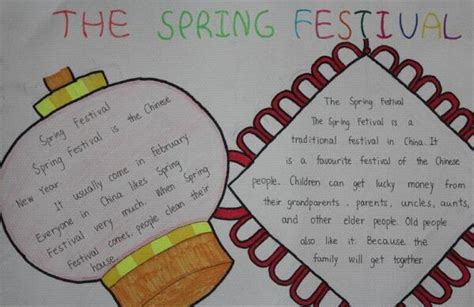 THE SPRING FESTIVAL
Spring Festival
Spring Festival is the Chinese
New Year.
It usually come in february
Everyone in China likes Spring
Festival very much. When Spring
Festival comes, people clean their
house.
The Spring Festival
The Spring Fetival is a
traditional festival in China. It
is a favourite festival of the Chinese
people. Children can get lucky money from
their grandparents, parents, uncles, aunts,
and other elder people. Old people
also like it. Because the
family will get together.